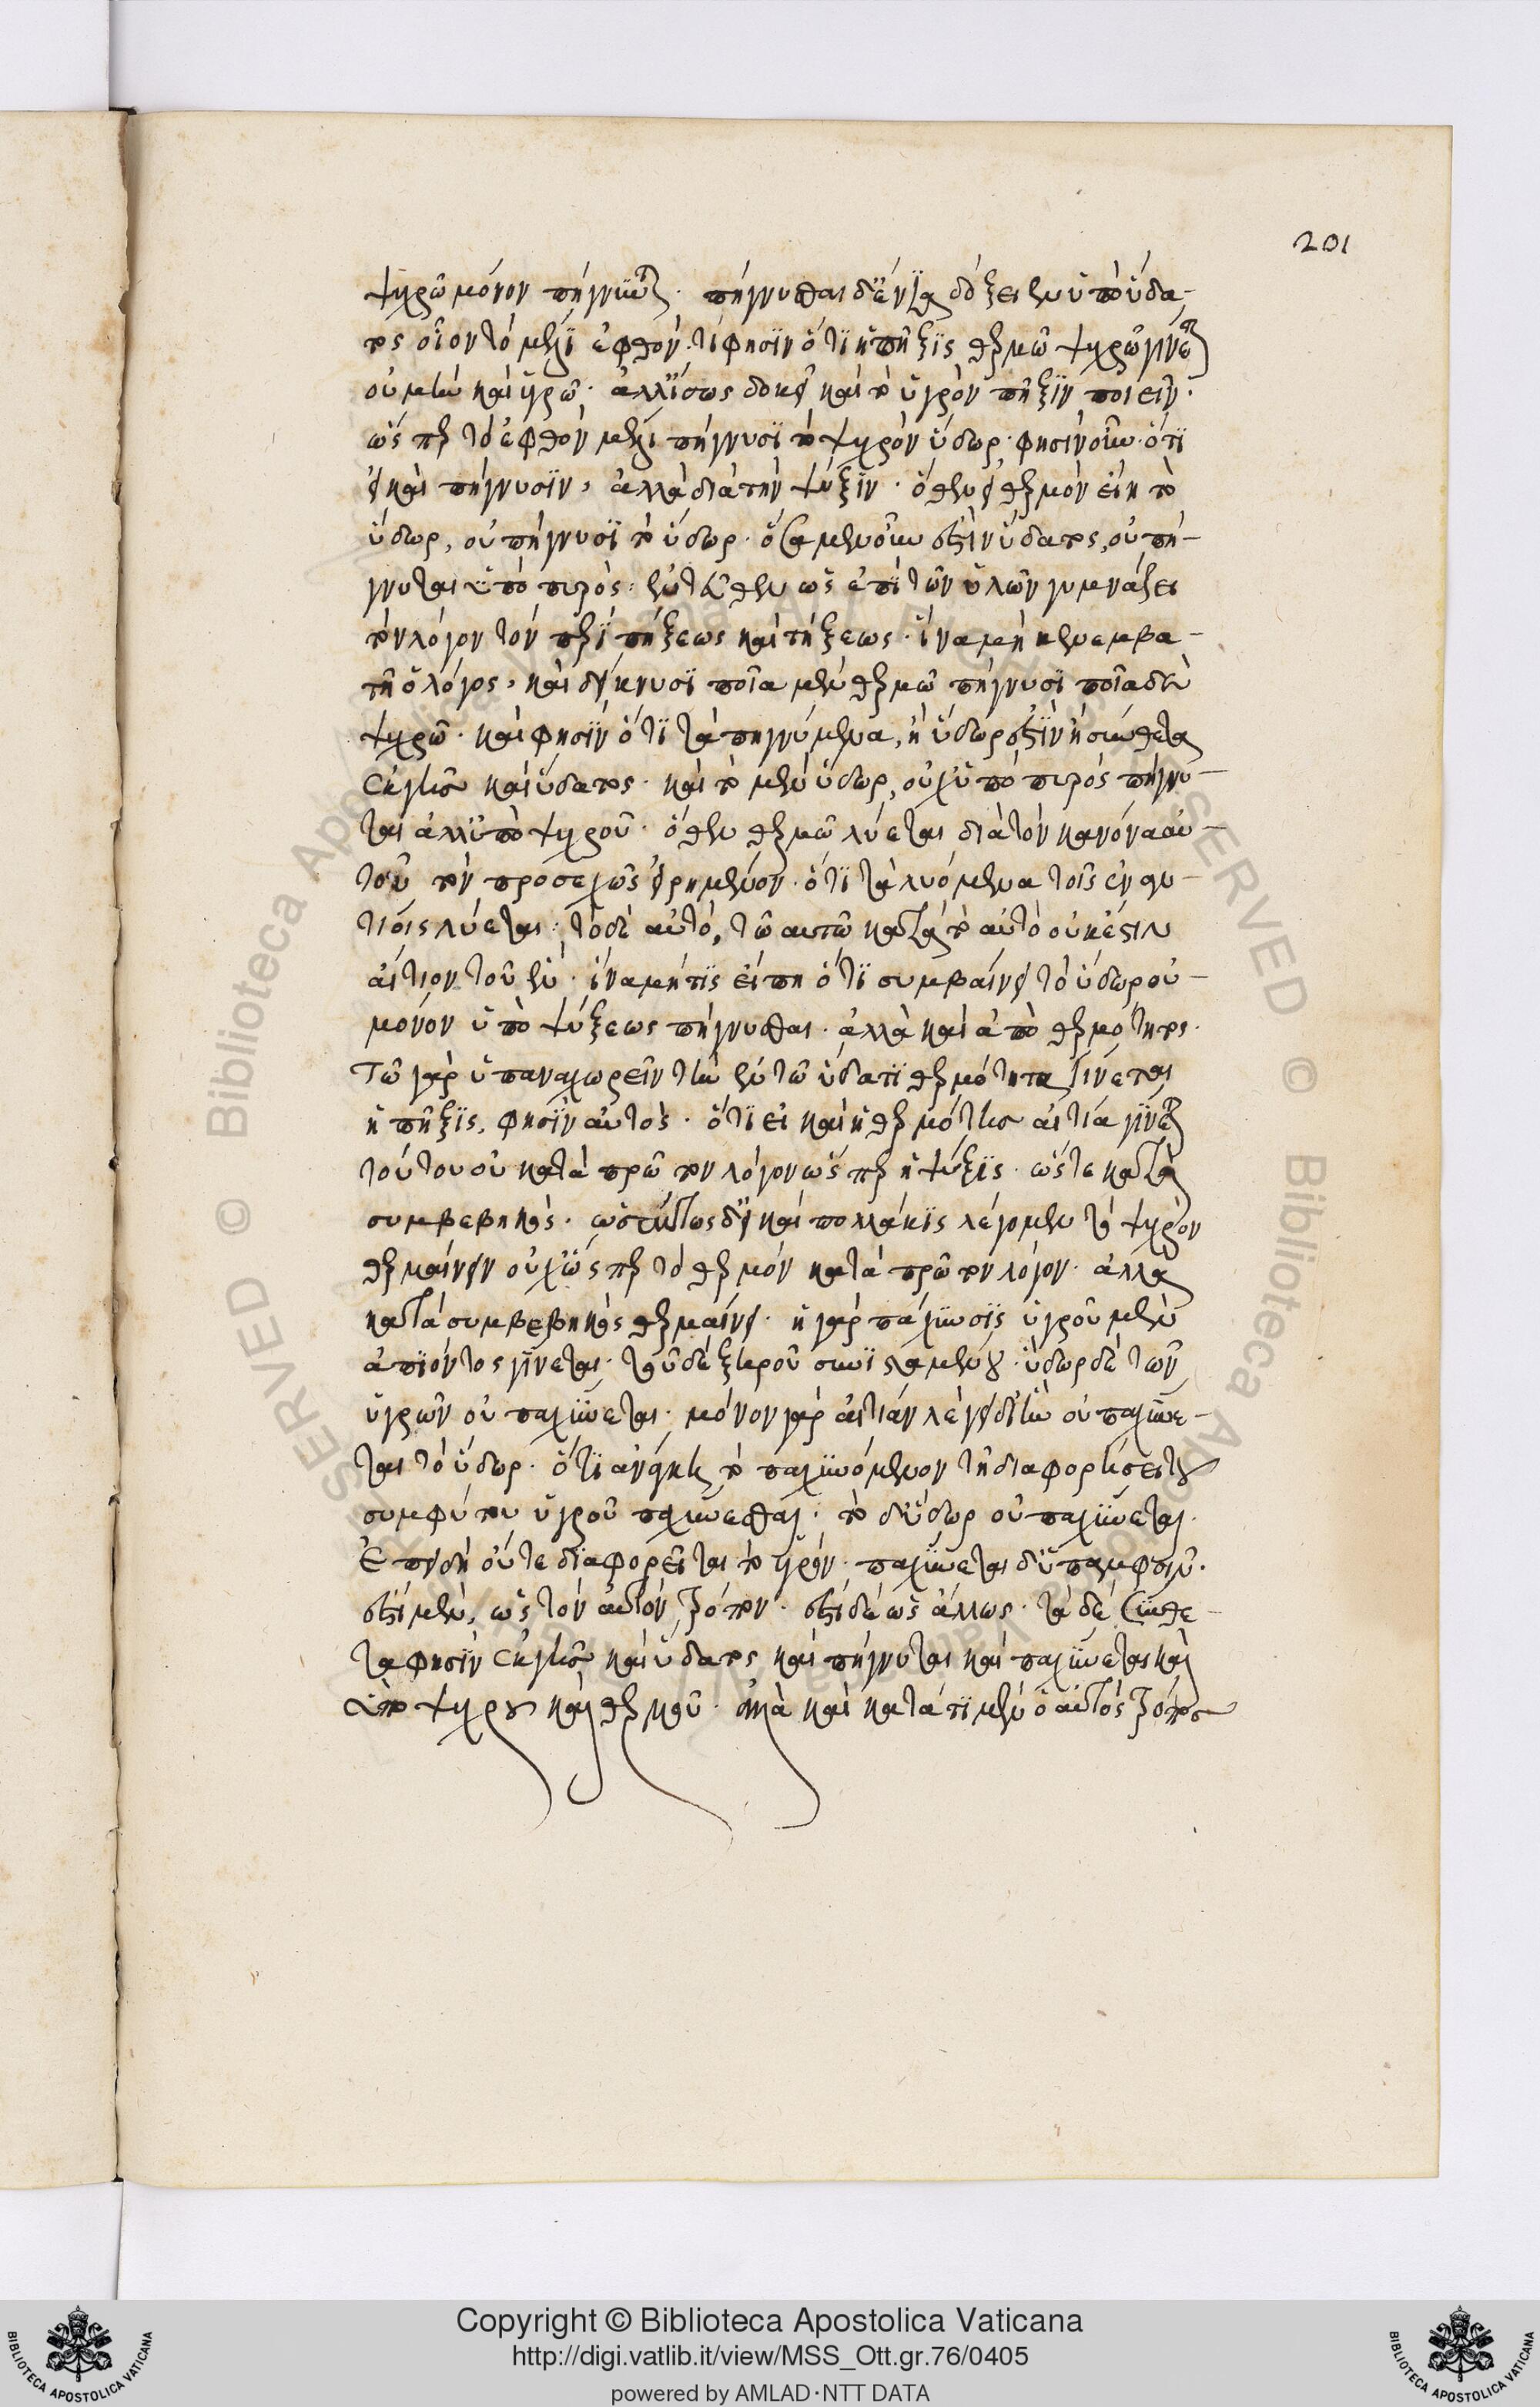 201
ψυχρῶ μόνον πήγνυται. πήγνυσθαι δ' ἔνια δόξειεν ὑπὸ ὕδα-
τος οἷον τὸ μέλι ἑφθόν. τί φησϊν ὅτϊ ἡ πῆξϊς θερμῶ ψυχρῶ γίνεται
οὐ μὴν καὶ ὑγρῶ. ἀλλ' ἴσως δοκεῖ καὶ τὸ ὑγρὸν πῆξϊν ποιεῖν.
ὥσπερ τὸ ἑφθὸν μέλι πήγνυσϊ τὸ ψυχρὸν ὕδωρ. φησὶν οὖν ὅτϊ
εἰ καὶ πήγνυσϊν, ἀλλὰ διὰ τὴν ψύξϊν. ὅθεν εἰ θερμὸν εἴη τὸ
ὕδωρ, οὐ πήγνυσϊ τὸ ὕδωρ. ὅσα μὲν οὖν ἐστὶν ὕδατος, οὐ πή-
γνυται ὑπὸ πυρός: ἐντεῦθεν ὡς ἐπὶ τῶν ὑλῶν γυμνάζει
τὸν λόγον τὸν περὶ πήξεως καὶ τήξεως. ἵνα μὴ κενεμβα-
τῆ ὁ λόγος, καὶ δείκνυσϊ ποῖα μὲν θερμῶ πήγνυσϊ ποῖα δὲ
ψυχρῶ. καὶ φησϊν ὅτϊ τὰ πηγνύμενα, ἢ ὕδωρ ἐστὶν ἢ σύνθετα
ἐκ γῆς καὶ ὕδατος. καὶ τὸ μὲν ὕδωρ, οὐχ ὑπὸ πυρὸς πήγνυ-
ται ἀλλ' ὑπὸ ψυχροῦ. ὅθεν θερμῶ λύεται διὰ τὸν κανόνα αὐ-
τοῦ τὸν προσεχῶς εἰρημένον. ὅτϊ τὰ λυόμενα τοῖς ἐναν-
τίοις λύεται: τὸ δὲ αὐτό, τῶ αυτῶ κατὰ τὸ αὐτὸ οὐκ ἔστιν
αἴτιον τοῦ. ἵνα μή τϊς εἴπη ὅτϊ συμβαίνει τὸ ὕδωρ οὐ
μόνον ὑπὸ ψύξεως πήγνυσθαι. ἀλλὰ καὶ ἀπὸ θερμότητος.
Τῶ γὰρ ὑπαναχωρεῖν τὴν ἐν τῶ ὕδατϊ θερμότητα γίνεται
ἡ πῆξϊς, φησϊν αὐτὸς. ὅτϊ εἰ καὶ ἡ θερμότης αἰτία γίνεται
τούτου οὐ κατὰ πρῶτον λόγον ὥσπερ ἡ ψύξϊς. ὥστε κατὰ
συμβεβηκός. ὡσαύτως δὴ καὶ πολλάκϊς λέγομεν τὸ ψυχρὸν
θερμαίνειν οὐχ ὥσπερ τὸ θερμὸν κατὰ πρῶτον λόγον. ἀλλὰ
κατὰ συμβεβηκὸς θερμαίνει. ἡ γὰρ πάχυνσϊς ὑγροῦ μὲν
ἀπϊόντος γίνεται. τοῦ δὲ ξηροῦ συνϊσταμένου. ὕδωρ δὲ τῶν
ὑγρῶν οὐ παχύνεται. μόνον γὰρ αἰτίαν λέγει δι' ἣν οὐ παχύνε-
ται τὸ ὕδωρ. ὅτϊ ἀνάγκη τὸ παχυνόμενον τῆ διαφορήσει τοῦ
συμφύτου ὑγροῦ παχύνεσθαι. τὸ δ' ὕδωρ οὐ παχύνεται.
Ἐπειδὴ οὔτε διαφορεῖται τὸ ὑγρόν. παχύνεται δ'
ἐστὶ μὲν, ὡς τὸν αὐτὸν τρόπον. ἐστὶ δὲ ὡς ἄλλως. τὰ δὲ σύνθε-
τα φησϊν ἐκ γῆς καὶ ὕδατος καὶ πήγνυται καὶ παχύνεται καὶ
ὑπὸ ψυχροῦ καὶ θερμοῦ. ἀλλὰ καὶ κατά τϊ μὲν ὁ αὐτὸς τρόπος
Copyright © Biblioteca Apostolica Vaticana
http://digi.vatlib.it/view/MSS_Ott.gr.76/0405
powered by AMLAD·NTT DATA